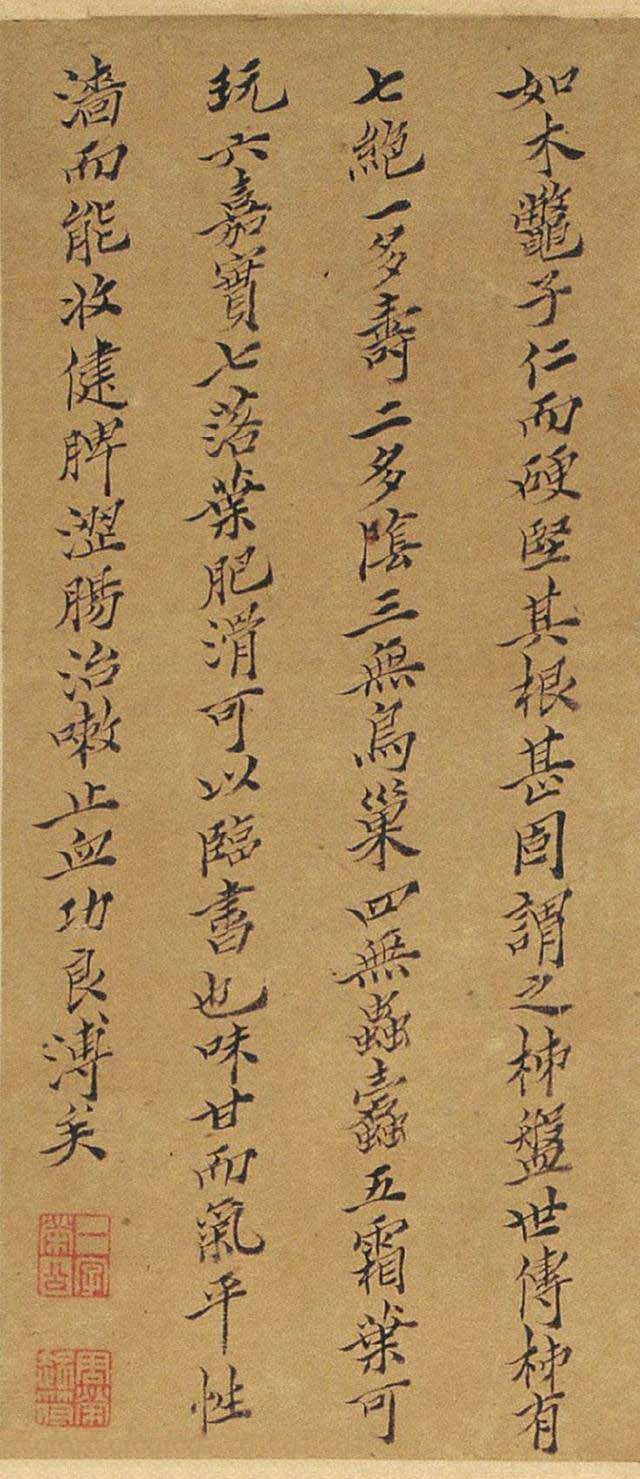 如木鼈子仁而硬堅其根甚固謂之柿盤世傳柿有
七絕一多壽二多陰三無鳥巢四無蟲蠹五霜葉可
玩六嘉實七落葉肥滑可以臨書也味甘而氣平性
濇而能收健脾澀腸治嗽止血功良溥矣